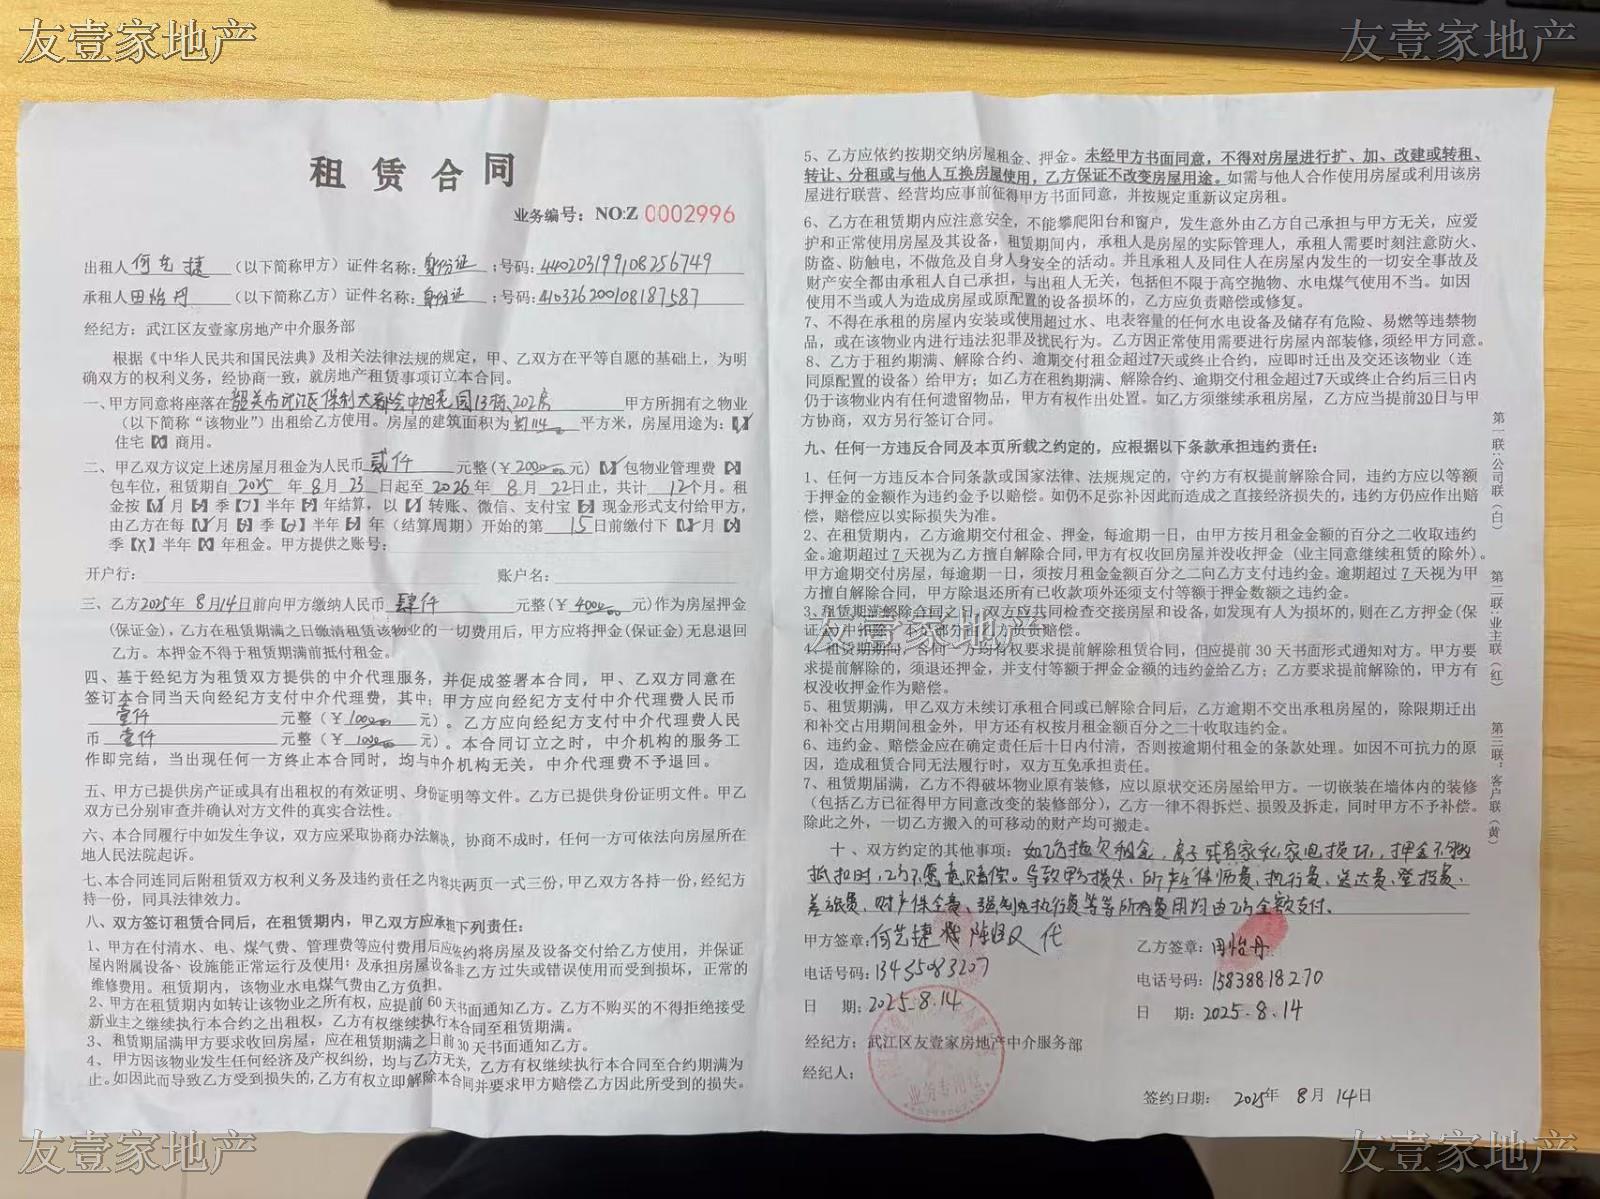 友壹家地产
友壹家地产
租赁合同
业务编号：NO:Z 0002996
出租人何艺捷（以下简称甲方）证件名称：身份证；号码：440203199108256749
承租人田怡丹（以下简称乙方）证件名称：身份证；号码：410326200108187587
经纪方：武江区友壹家房地产中介服务部
根据《中华人民共和国民法典》及相关法律法规的规定，甲、乙双方在平等自愿的基础上，为明
确双方的权利义务，经协商一致，就房地产租赁事项订立本合同。
一、甲方同意将座落在韶关市武江区保利大都会中旭花园13栋、202房甲方所拥有之物业
（以下简称“该物业”）出租给乙方使用。房屋的建筑面积为约114平方米，房屋用途为：【✓】
住宅【X】商用。
二、甲乙双方议定上述房屋月租金为人民币贰仟元整（￥2000.00元）【✓】包物业管理费【X】
包车位，租赁期自2025年8月23日起至2026年8月22日止，共计12个月。租
金按【✓】月【X】季【X】半年【X】年结算，以【✓】转账、微信、支付宝【X】现金形式支付给甲方，
由乙方在每【✓】月【X】季【X】半年【X】年（结算周期）开始的第15日前缴付下【✓】月【X】
季【X】半年【X】年租金。甲方提供之账号：
开户行：账户名：
三、乙方2025年8月14日前向甲方缴纳人民币肆仟元整（￥4000.00元）作为房屋押金
（保证金），乙方在租赁期满之日缴清租赁该物业的一切费用后，甲方应将押金（保证金）无息退回
乙方。本押金不得于租赁期满前抵付租金。
四、基于经纪方为租赁双方提供的中介代理服务，并促成签署本合同，甲、乙双方同意在
签订本合同当天向经纪方支付中介代理费，其中：甲方应向经纪方支付中介代理费人民币
壹仟元整（￥1000.00元）。乙方应向经纪方支付中介代理费人民
币壹仟元整（￥1000.00元）。本合同订立之时，中介机构的服务工
作即完结，当出现任何一方终止本合同时，均与中介机构无关，中介代理费不予退回。
五、甲方已提供房产证或具有出租权的有效证明、身份证明等文件。乙方已提供身份证明文件。甲乙
双方已分别审查并确认对方文件的真实合法性。
六、本合同履行中如发生争议，双方应采取协商办法解决，协商不成时，任何一方可依法向房屋所在
地人民法院起诉。
七、本合同连同后附租赁双方权利义务及违约责任之内容共两页一式三份，甲乙双方各持一份，经纪方
持一份，同具法律效力。
八、双方签订租赁合同后，在租赁期内，甲乙双方应承担下列责任：
1、甲方在付清水、电、煤气费、管理费等应付费用后应依约将房屋及设备交付给乙方使用，并保证
屋内附属设备、设施能正常运行及使用；及承担房屋设备非乙方过失或错误使用而受到损坏，正常的
维修费用。租赁期内，该物业水电煤气费由乙方负担。
2、甲方在租赁期内如转让该物业之所有权，应提前60天书面通知乙方。乙方不购买的不得拒绝接受
新业主之继续执行本合约之出租权，乙方有权继续执行本合同至租赁期满。
3、租赁期届满甲方要求收回房屋，应在租赁期满之日前30天书面通知乙方。
4、甲方因该物业发生任何经济及产权纠纷，均与乙方无关，乙方有权继续执行本合同至合约期满为
止。如因此而导致乙方受到损失的，乙方有权立即解除本合同并要求甲方赔偿乙方因此所受到的损失。
5、乙方应依约按期交纳房屋租金、押金。未经甲方书面同意，不得对房屋进行扩、加、改建或转租、
转让、分租或与他人互换房屋使用，乙方保证不改变房屋用途。如需与他人合作使用房屋或利用该房
屋进行联营、经营均应事前征得甲方书面同意，并按规定重新议定房租。
6、乙方在租赁期内应注意安全，不能攀爬阳台和窗户，发生意外由乙方自己承担与甲方无关，应爱
护和正常使用房屋及其设备，租赁期间内，承租人是房屋的实际管理人，承租人需要时刻注意防火、
防盗、防触电，不做危及自身人身安全的活动。并且承租人及同住人在房屋内发生的一切安全事故及
财产安全都由承租人自己承担，与出租人无关，包括但不限于高空抛物、水电煤气使用不当。如因
使用不当或人为造成房屋或原配置的设备损坏的，乙方应负责赔偿或修复。
7、不得在承租的房屋内安装或使用超过水、电表容量的任何水电设备及储存有危险、易燃等违禁物
品，或在该物业内进行违法犯罪及扰民行为。乙方因正常使用需要进行房屋内部装修，须经甲方同意。
8、乙方于租约期满、解除合约、逾期交付租金超过7天或终止合约，应即时迁出及交还该物业（连
同原配置的设备）给甲方；如乙方在租约期满、解除合约、逾期交付租金超过7天或终止合约后三日内
仍于该物业内有任何遗留物品，甲方有权作出处置。如乙方须继续承租房屋，乙方应当提前30日与甲
方协商，双方另行签订合同。
九、任何一方违反合同及本页所载之约定的，应根据以下条款承担违约责任：
1、任何一方违反本合同条款或国家法律、法规规定的，守约方有权提前解除合同，违约方应以等额
于押金的金额作为违约金予以赔偿。如仍不足弥补因此而造成之直接经济损失的，违约方仍应作出赔
偿，赔偿应以实际损失为准。
2、在租赁期内，乙方逾期交付租金、押金，每逾期一日，由甲方按月租金金额的百分之二收取违约
金。逾期超过7天视为乙方擅自解除合同，甲方有权收回房屋并没收押金（业主同意继续租赁的除外）。
甲方逾期交付房屋，每逾期一日，须按月租金金额百分之二向乙方支付违约金。逾期超过7天视为甲
方擅自解除合同，甲方除退还所有已收款项外还须支付等额于押金数额之违约金。
3、租赁期满解除合同之日，双方应共同检查交接房屋和设备，如发现有人为损坏的，则在乙方押金（保
证金）中扣除，不足部分由乙方负责赔偿。
友壹家地产
4、租赁期期间，任何一方均有权要求提前解除租赁合同，但应提前30天书面形式通知对方。甲方要
求提前解除的，须退还押金，并支付等额于押金金额的违约金给乙方；乙方要求提前解除的，甲方有
权没收押金作为赔偿。
5、租赁期满，甲乙双方未续订承租合同或已解除合同后，乙方逾期不交出承租房屋的，除限期迁出
和补交占用期间租金外，甲方还有权按月租金额百分之二十收取违约金。
6、违约金、赔偿金应在确定责任后十日内付清，否则按逾期付租金的条款处理。如因不可抗力的原
因，造成租赁合同无法履行时，双方互免承担责任。
7、租赁期届满，乙方不得破坏物业原有装修，应以原状交还房屋给甲方。一切嵌装在墙体内的装修
（包括乙方已征得甲方同意改变的装修部分），乙方一律不得拆烂、损毁及拆走，同时甲方不予补偿。
除此之外，一切乙方搬入的可移动的财产均可搬走。
十、双方约定的其他事项：如乙方拖欠租金，房子或者家私家电损坏，押金不够
抵扣时，乙方不愿意赔偿。导致甲方损失、所产生律师费、执行费、送达费、登报费、
差旅费、财产保全费、强制执行费等等所有费用均由乙方全额支付。
甲方签章：何艺捷 代
乙方签章：田怡丹
电话号码：13435083207
电话号码：15838818270
日 期：2025.8.14
日 期：2025.8.14
经纪方：武江区友壹家房地产中介服务部
经纪人：
业务专用章
签约日期：2025年8月14日
第一联：公司联（白）
第二联：业主联（红）
第三联：客户联（黄）
友壹家地产
友壹家地产